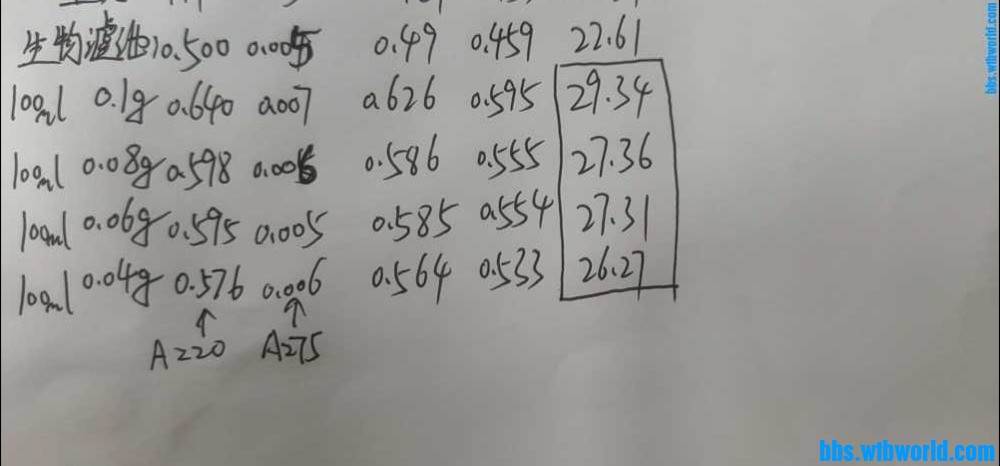 生物滤池 0.500 0.005 0.49 0.459 22.61
100ml 0.1g 0.640 0.007 0.626 0.595 29.34
100ml 0.08g 0.598 0.006 0.586 0.555 27.36
100ml 0.06g 0.595 0.005 0.585 0.554 27.31
100ml 0.04g 0.576 0.006 0.564 0.533 26.27
↑ ↑
A220 A275
bbs.wtbworld.com
bbs.wtbworld.com